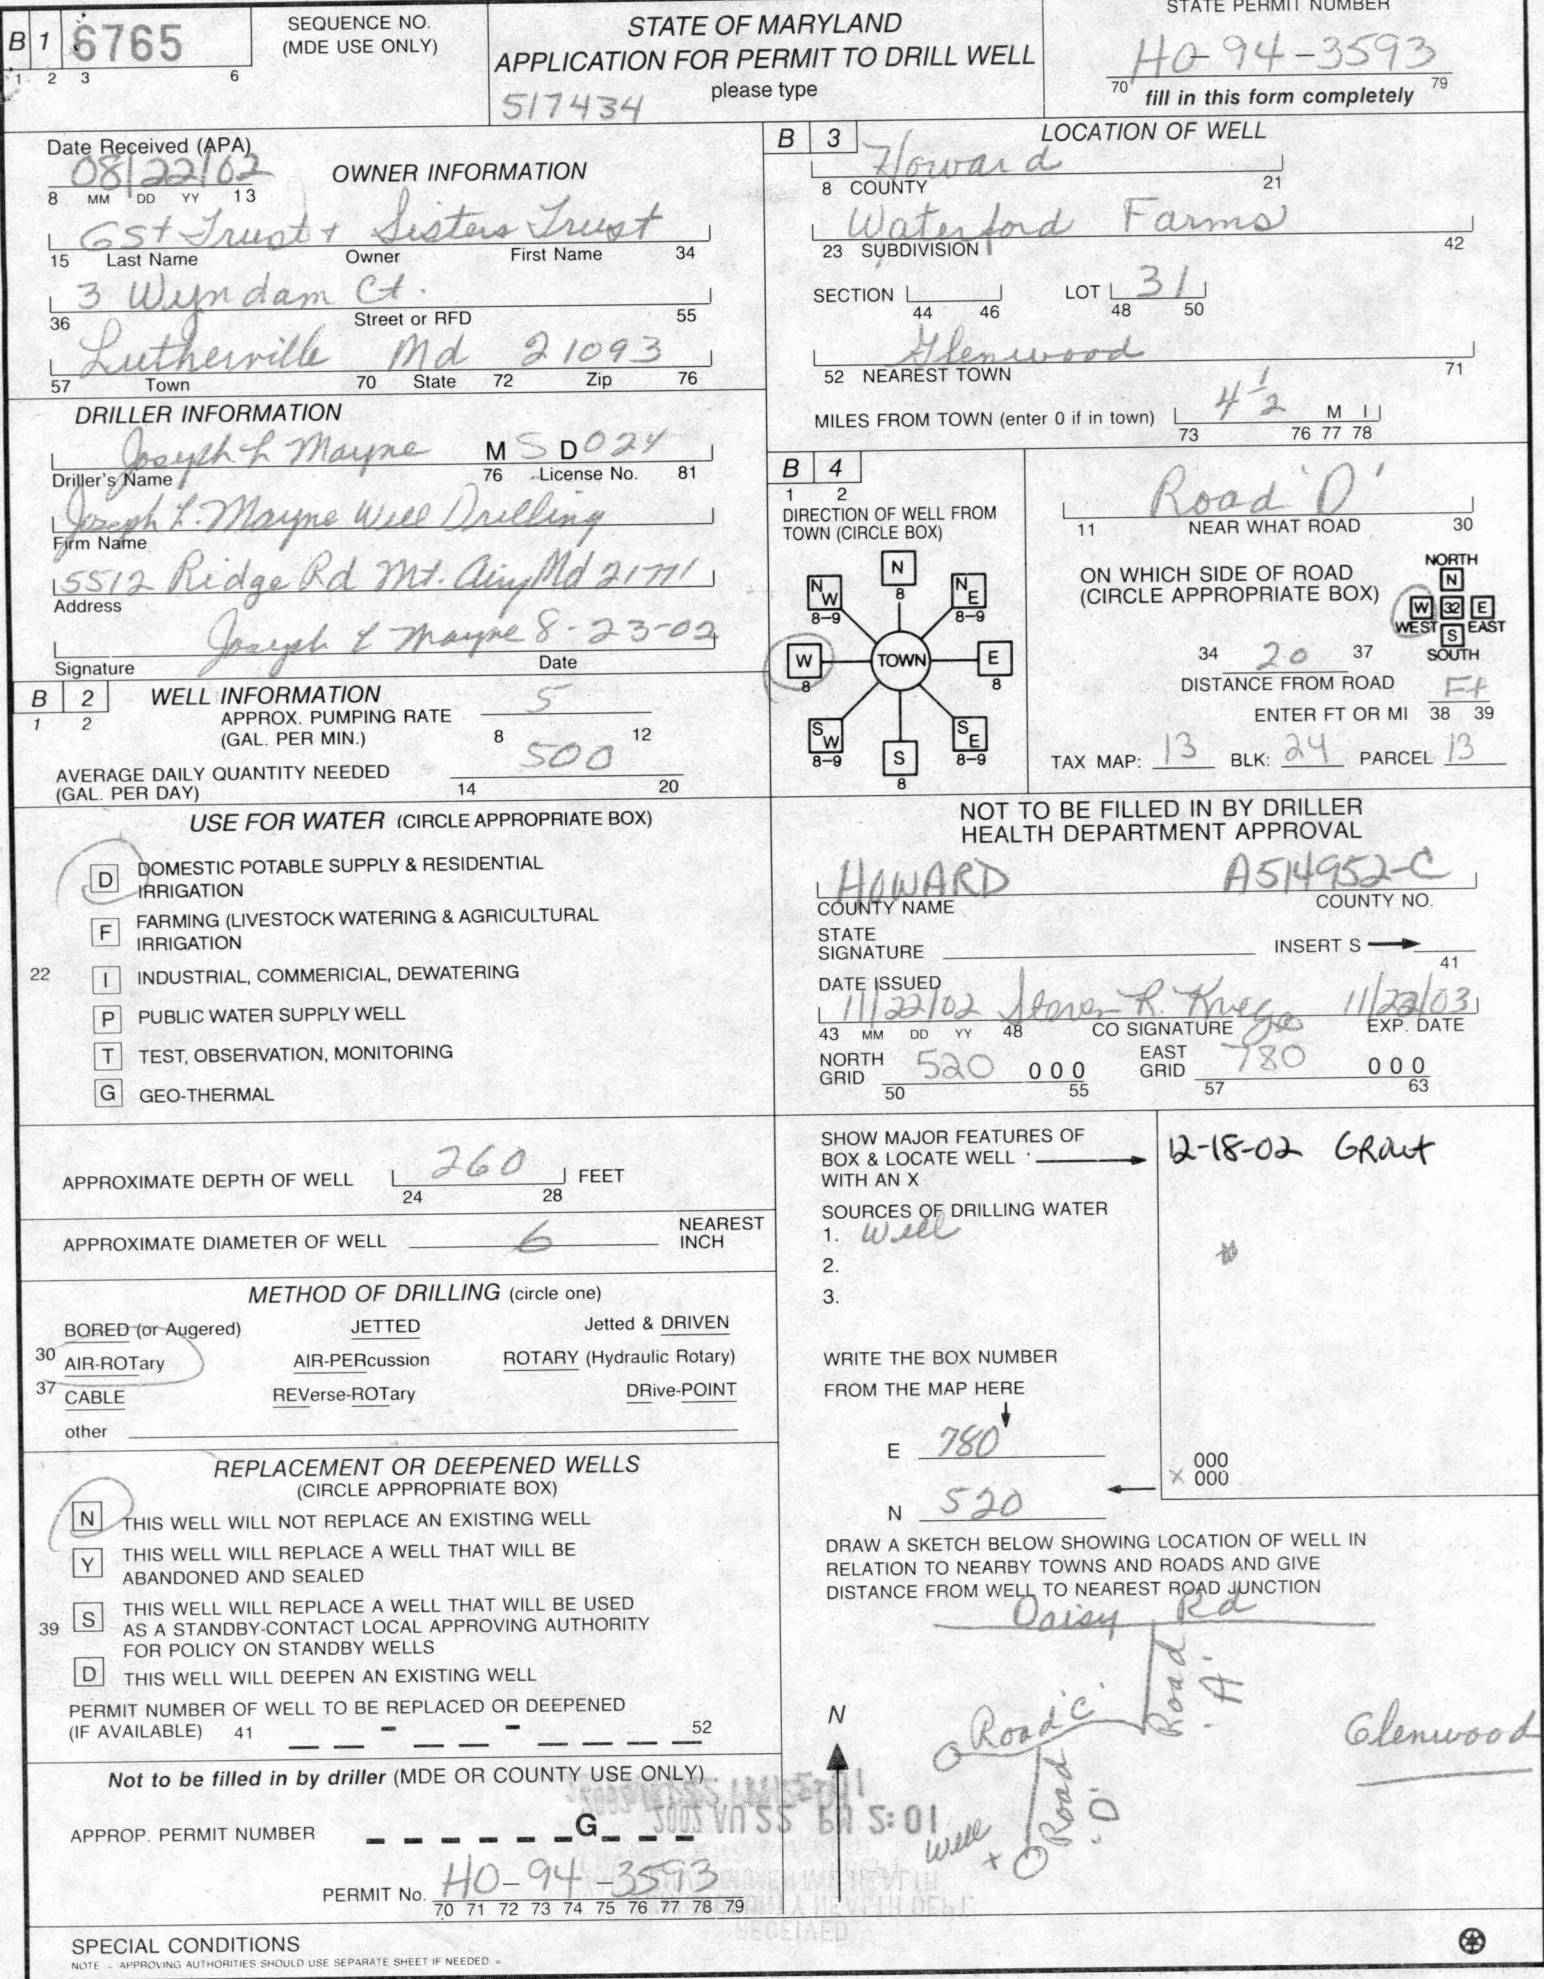 B 1 6765
1 2 3 6
SEQUENCE NO.
(MDE USE ONLY)
STATE OF MARYLAND
APPLICATION FOR PERMIT TO DRILL WELL
please type
517434
STATE PERMIT NUMBER
HO-94-3593
70 79
fill in this form completely
Date Received (APA)
08/22/02
8 MM DD YY 13
OWNER INFORMATION
GSt Trust + Sisters Trust
15 Last Name Owner First Name 34
3 Wyndam Ct.
36 Street or RFD 55
Lutherville Md 21093
57 Town 70 State 72 Zip 76
DRILLER INFORMATION
Joseph L Mayne M S D 024
Driller's Name 76 License No. 81
Joseph L. Mayne Well Drilling
Firm Name
5512 Ridge Rd Mt. Airy Md 21771
Address
Joseph L Mayne 8-23-02
Signature Date
B 2 WELL INFORMATION
1 2
APPROX. PUMPING RATE 5
(GAL. PER MIN.) 8 12
AVERAGE DAILY QUANTITY NEEDED 500
(GAL. PER DAY) 14 20
USE FOR WATER (CIRCLE APPROPRIATE BOX)
D DOMESTIC POTABLE SUPPLY & RESIDENTIAL
IRRIGATION
F FARMING (LIVESTOCK WATERING & AGRICULTURAL
IRRIGATION
22 I INDUSTRIAL, COMMERICIAL, DEWATERING
P PUBLIC WATER SUPPLY WELL
T TEST, OBSERVATION, MONITORING
G GEO-THERMAL
APPROXIMATE DEPTH OF WELL 260 FEET
24 28
APPROXIMATE DIAMETER OF WELL 6 NEAREST
INCH
METHOD OF DRILLING (circle one)
BORED (or Augered) JETTED Jetted & DRIVEN
30 AIR-ROTary AIR-PERcussion ROTARY (Hydraulic Rotary)
37 CABLE REVerse-ROTary DRive-POINT
other
REPLACEMENT OR DEEPENED WELLS
(CIRCLE APPROPRIATE BOX)
N THIS WELL WILL NOT REPLACE AN EXISTING WELL
Y THIS WELL WILL REPLACE A WELL THAT WILL BE
ABANDONED AND SEALED
39 S THIS WELL WILL REPLACE A WELL THAT WILL BE USED
AS A STANDBY-CONTACT LOCAL APPROVING AUTHORITY
FOR POLICY ON STANDBY WELLS
D THIS WELL WILL DEEPEN AN EXISTING WELL
PERMIT NUMBER OF WELL TO BE REPLACED OR DEEPENED
(IF AVAILABLE) 41 - - 52
Not to be filled in by driller (MDE OR COUNTY USE ONLY)
APPROP. PERMIT NUMBER G
PERMIT No. HO-94-3593
70 71 72 73 74 75 76 77 78 79
SPECIAL CONDITIONS
NOTE - APPROVING AUTHORITIES SHOULD USE SEPARATE SHEET IF NEEDED =
B 3 LOCATION OF WELL
Howard
8 COUNTY 21
Waterford Farms
23 SUBDIVISION 42
SECTION LOT 31
44 46 48 50
Glenwood
52 NEAREST TOWN 71
MILES FROM TOWN (enter 0 if in town) 4 1/2 M I
73 76 77 78
B 4
1 2
DIRECTION OF WELL FROM
TOWN (CIRCLE BOX)
N
8
NW
8-9
NE
8-9
W
8
TOWN
E
8
SW
8-9
S
8
SE
8-9
Road 'D'
11 NEAR WHAT ROAD 30
ON WHICH SIDE OF ROAD
(CIRCLE APPROPRIATE BOX)
NORTH
N
W 32 E
WEST S EAST
SOUTH
34 20 37
DISTANCE FROM ROAD Ft
ENTER FT OR MI 38 39
TAX MAP: 13 BLK: 24 PARCEL 13
NOT TO BE FILLED IN BY DRILLER
HEALTH DEPARTMENT APPROVAL
HOWARD A514952-C
COUNTY NAME COUNTY NO.
STATE
SIGNATURE INSERT S
41
DATE ISSUED
11/22/02 Steven R. Krieg 11/22/03
43 MM DD YY 48 CO SIGNATURE EXP. DATE
NORTH
GRID 520 000
50 55
EAST
GRID 780 000
57 63
SHOW MAJOR FEATURES OF
BOX & LOCATE WELL
WITH AN X
12-18-02 GRout
SOURCES OF DRILLING WATER
1. Well
2.
3.
WRITE THE BOX NUMBER
FROM THE MAP HERE
E 780
N 520
000
X 000
DRAW A SKETCH BELOW SHOWING LOCATION OF WELL IN
RELATION TO NEARBY TOWNS AND ROADS AND GIVE
DISTANCE FROM WELL TO NEAREST ROAD JUNCTION
Daisy Rd
Road 'A'
N
Road 'C'
Glenwood
Road 'D'
Well X